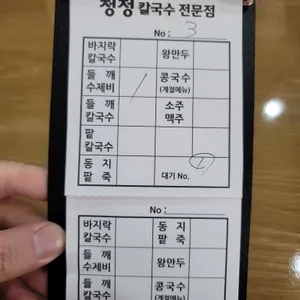 청정 칼국수 전문점
No : 3
바지락 칼국수
왕만두
들깨 수제비
/
콩국수 (계절메뉴)
들깨 칼국수
소주 맥주
팥 칼국수
동지 팥죽
대기 No.
No :
바지락 칼국수
동지 팥죽
들깨 수제비
왕만두
들깨
콩국수 (계절메뉴)